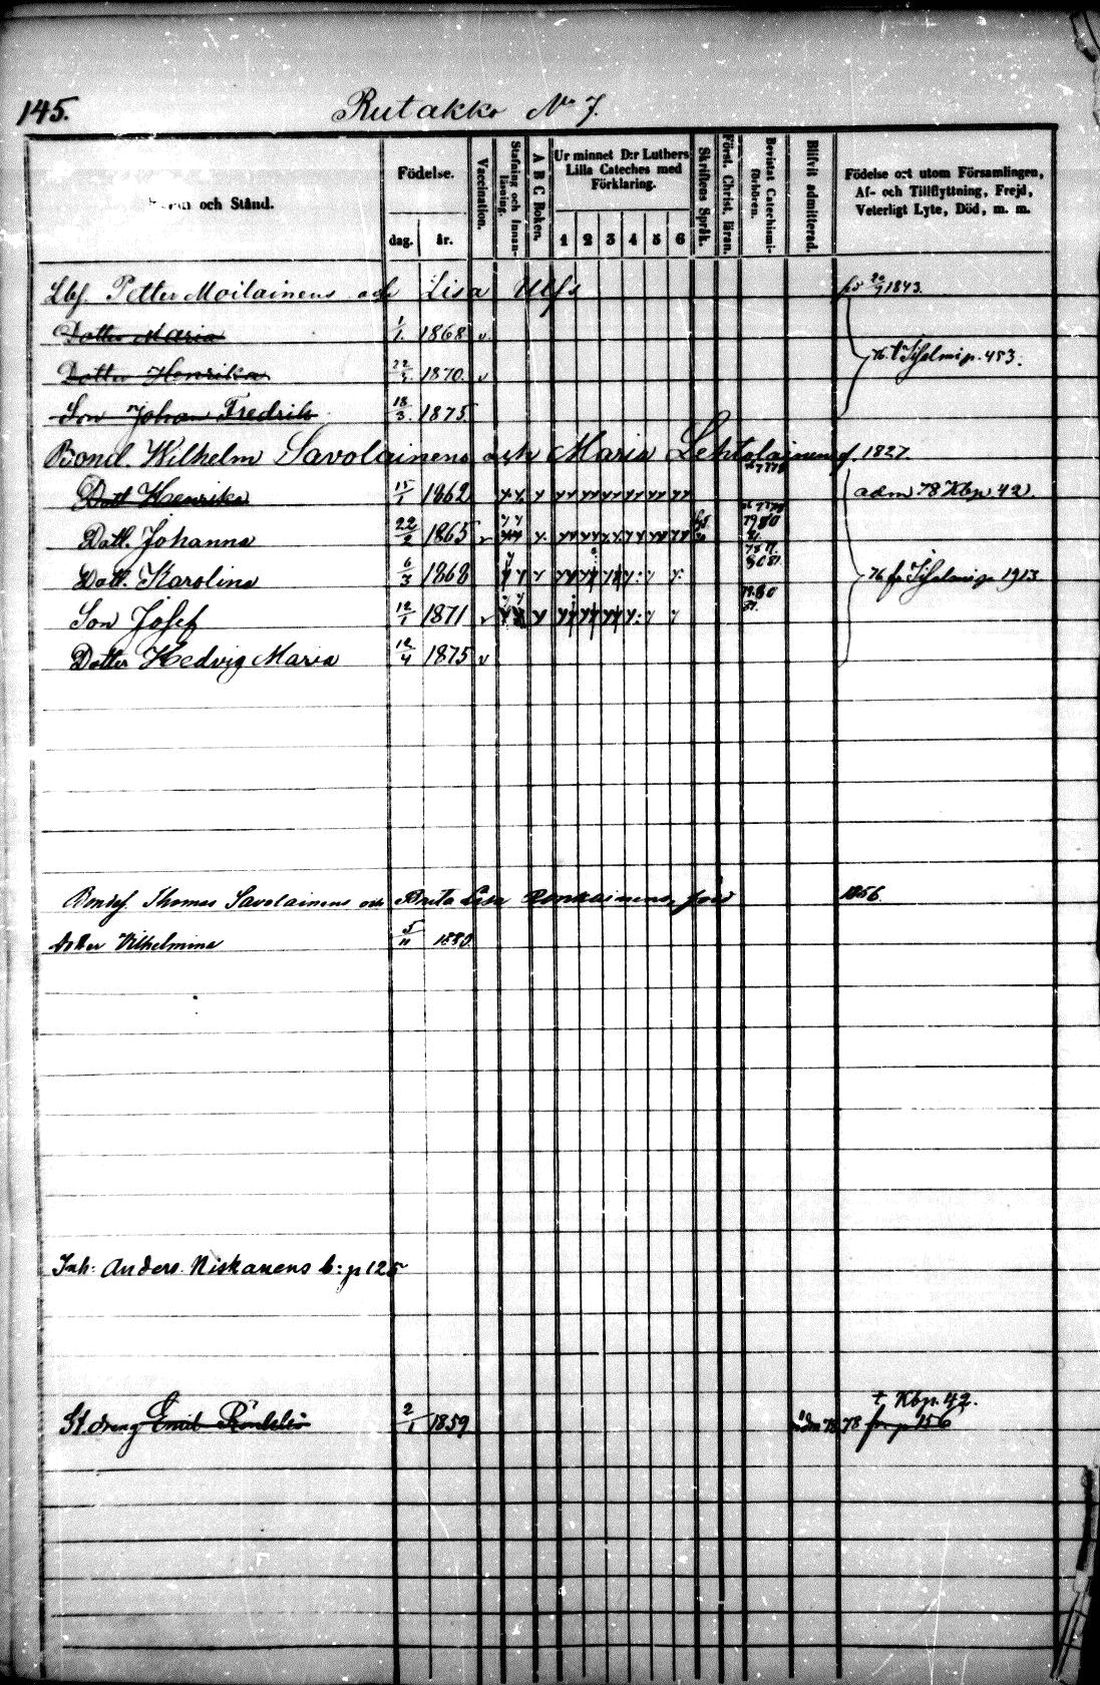 145. Rutakko No 7.
Person och Stånd.
Födelse.
dag. år.
Vaccination.
Stafning och Innanläsning.
A B C Boken.
Ur minnet D:r Luthers Lilla Cateches med Förklaring.
1 2 3 4 5 6
Skriftens Språk.
Först. Christ. läran.
Bevistat Catechismiförhören.
Blifvit admitterad.
Födelse ort utom Församlingen, Af- och Tillflyttning, Frejd, Veterligt Lyte, Död, m. m.
Lbf. Petter Moilainens och Lisa Ulfs 1843.
Dotter Maria 1/1. 1868 v.
76. t p. 453.
Dotter Henrika 1870. v
Son Johan Fredrik 18/3. 1875.
Bond. Wilhelm Savolainens och Maria Lehtolainen f. 1827.
Dott Henrika 15/1 1862 adm 78 Kbp 42.
Dott. Johanna 22/2 1865 v
Dott. Karolina 6/3 1868 76 fr p 1913
Son Josef 12/1 1871 v
Dotter Hedvig Maria 12/4 1875 v
Bondef. Thomas Savolainens och Brita Lisa Ronkainens, 1856.
dotter Vilhelmina 5/11 1880.
Inh: Anders Niskanens b: p 125
t. Kbp. 42.
St. dreng Emil 2/1 1859 adm 78 78 p 156